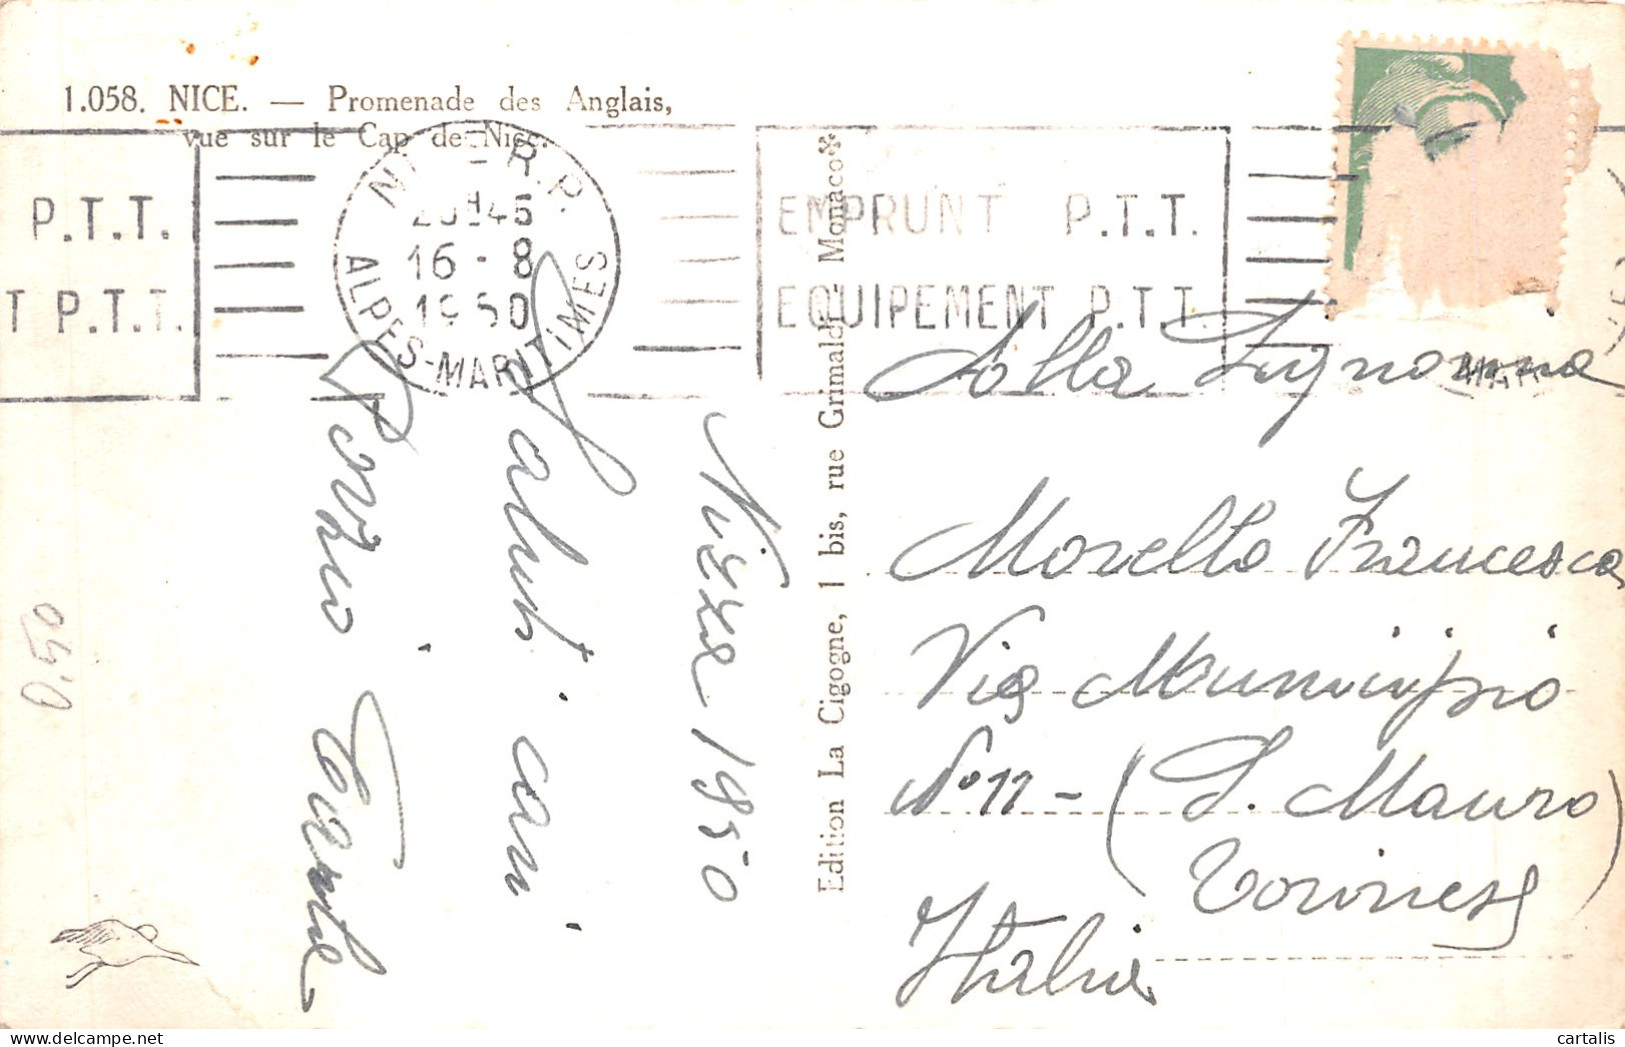 1.058. NICE. — Promenade des Anglais,
vue sur le Cap de Nice.
P.T.T.
T P.T.T.
NICE R.P.
20H45
16 - 8
1950
ALPES-MARITIMES
EMPRUNT P.T.T.
EQUIPEMENT P.T.T.
Nizza 1950
Saluti cari
Porzio
Edition La Cigogne, 1 bis, rue Grimaldi - Monaco
Alla Signorina
Morello Francesca
Via Municipio
N° 11 - (S. Mauro
Torinese)
Italia
0,50
cartalis